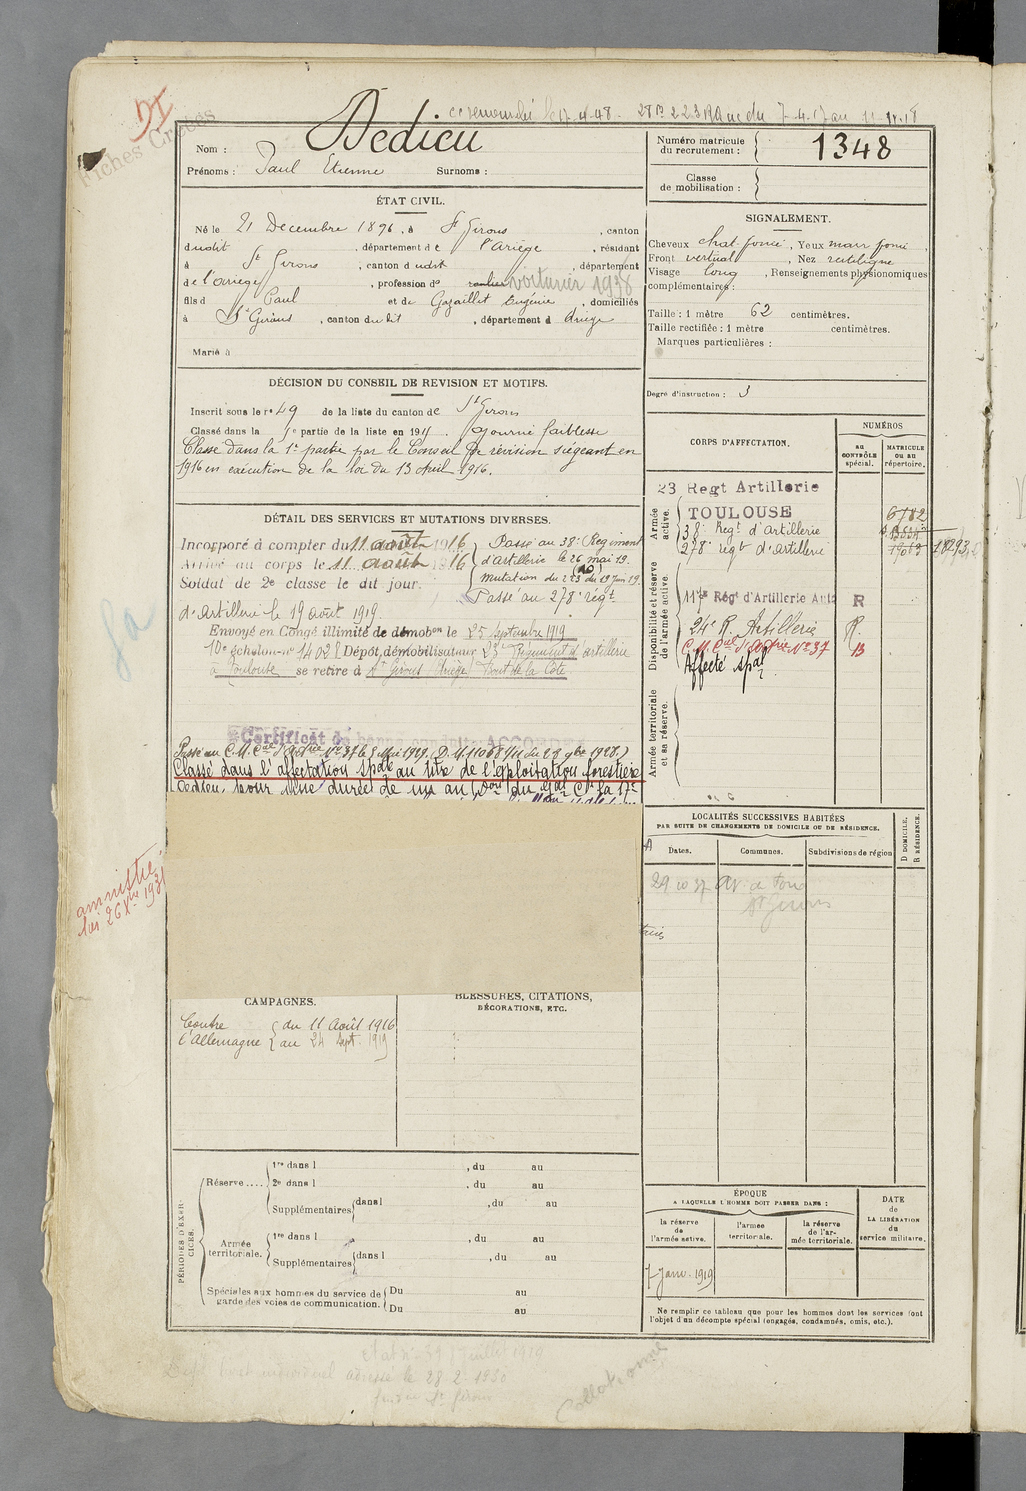 DI
Fiches Créées
28 R 223 RA du 7-4-17 au 11-11-18
Nom : Dedieu
Prénoms : Paul Etienne Surnoms :
Numéro matricule du recrutement : 1348
Classe de mobilisation :
ÉTAT CIVIL.
Né le 21 Decembre 1896, à St Girons, canton
dudit, département de l'Ariège, résidant
à St Girons, canton dudit, département
de l'Ariège, profession de roulier voiturier 1938
fils de Paul et de Gazaillet Eugénie, domiciliés
à St Girons, canton dudit, département d Ariège
Marié à
SIGNALEMENT.
Cheveux chat. foncé, Yeux marr foncé,
Front vertical, Nez rectiligne
Visage long, Renseignements physionomiques
complémentaires :
Taille : 1 mètre 62 centimètres.
Taille rectifiée : 1 mètre centimètres.
Marques particulières :
Degré d'instruction : 3
DÉCISION DU CONSEIL DE REVISION ET MOTIFS.
Inscrit sous le no 49 de la liste du canton de St Girons
Classé dans la 5e partie de la liste en 1915. Ajourné faiblesse
Classé dans la 1e partie par le Conseil de révision siégeant en
1916 en exécution de la loi du 13 Avril 1916.
DÉTAIL DES SERVICES ET MUTATIONS DIVERSES.
Incorporé à compter du 11 août 1916
Arrivé au corps le 11 août 1916
Soldat de 2e classe le dit jour.
Passé au 38e Régiment
d'artillerie le 26 mai 19.
mutation du 223 du 19 Juin 19.
Passé au 278e régt
d'Artillerie le 19 août 1919.
Envoyé en Congé illimité de démobon le 25 Septembre 1919
10e échelon no 14028 Dépôt démobilisateur 23e Régiment d'artillerie
à Toulouse se retire à St Girons (Ariège) Pont de la Côte.
Certificat de bonne conduite ACCORDÉ
Passé au C.M. Cal d'Artrie No 37 le 5 Mai 1929. (D.M. 11068 1/11 du 28 9bre 1928)
Classé dans l'affectation spale au titre de l'exploitation forestière
Dedieu, pour une durée de un an (Don du Gal Ct la 17e
amnistié
loi 26 Xbre 1931
CORPS D'AFFECTATION.
NUMÉROS
au CONTRÔLE spécial.
MATRICULE ou au répertoire.
Armée active.
23 Regt Artillerie
TOULOUSE
38e Regt d'artillerie
278e régt d'artillerie
6782
Disponibilité et réserve de l'armée active.
117e Régt d'Artillerie Auto R
24e R. Artillerie R.
C.M. Cal d'Artrie No 37 B
Affecté spal
Armée territoriale et sa réserve.
LOCALITÉS SUCCESSIVES HABITÉES
PAR SUITE DE CHANGEMENTS DE DOMICILE OU DE RÉSIDENCE.
Dates. Communes. Subdivisions de région
D DOMICILE.
R RÉSIDENCE.
29 10 37 Av. de Foix
St Girons
CAMPAGNES.
Contre l'Allemagne
du 11 Août 1916
au 24 Sept. 1919
BLESSURES, CITATIONS,
DÉCORATIONS, ETC.
PÉRIODES D'EXERCICES.
Réserve....
1re dans l , du au
2e dans l , du au
Supplémentaires dans l , du au
Armée territoriale.
1re dans l , du au
Supplémentaires dans l , du au
Spéciales aux hommes du service de
garde des voies de communication.
Du au
Du au
ÉPOQUE
A LAQUELLE L'HOMME DOIT PASSER DANS :
la réserve de l'armée active.
l'armée territoriale.
la réserve de l'armée territoriale.
DATE
de
LA LIBÉRATION
du
service militaire.
7 Janv. 1919
Ne remplir ce tableau que pour les hommes dont les services font
l'objet d'un décompte spécial (engagés, condamnés, omis, etc.).
adressé le 28-2-1930
Collationné